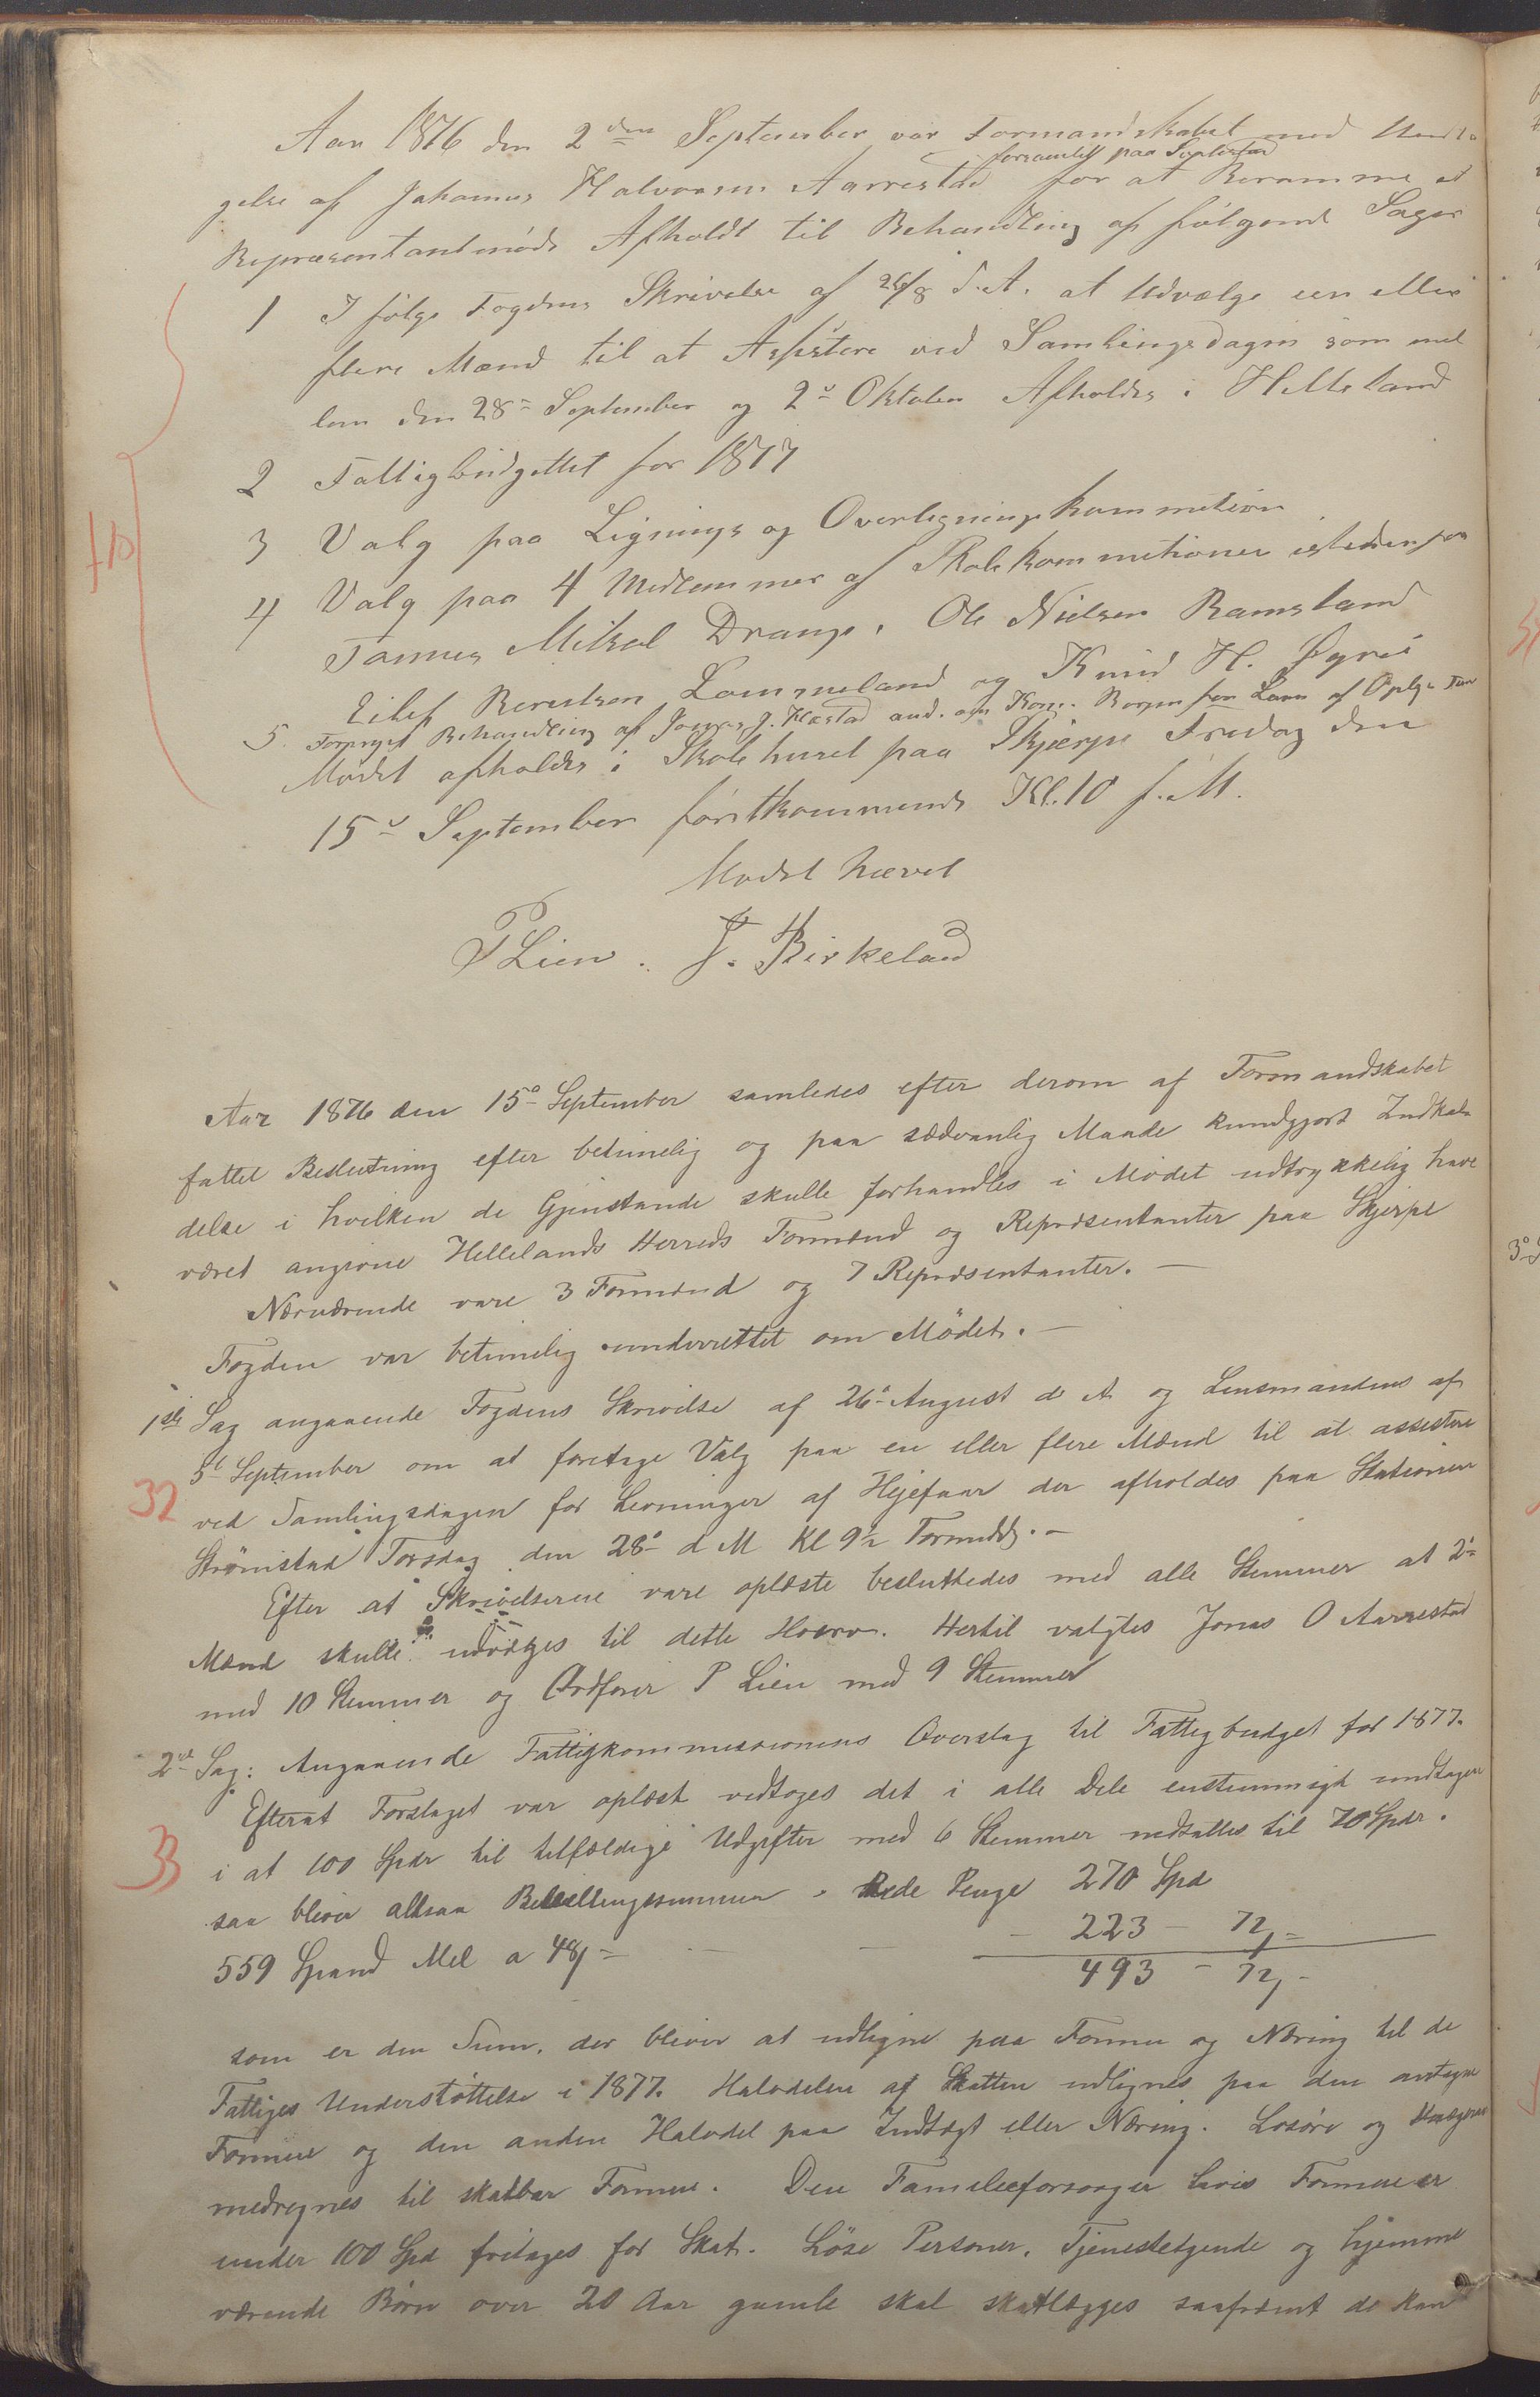 Aar 1876 den 2den September var Formandskabet med Undta
gelse af Johannes Halvorsen Aarrestad forsamlet paa for at Beramme et
Repræsentantmøde Afholdt til Behandling af følgende Sager
1 I følge Fogdens Skrivelse af 26/8 d.A. at Udvælge een eller
flere Mænd til at Assistere ved Samlingsdagen som mel
lem den 28de September og 2de Oktober Afholdes i Helleland
2 Fattigbudgettet for 1877
10
3 Valg paa Lignings og Overligningskommisionen
4 Valg paa 4 Medlemmer af Skolekommitioner istedenfor
Tønnes Mikal Drange, Ole Nielsen Ramsland
Eilef Berentsen Lommeland og Knud H. Øgrei
5. Fornyet Behandling af Jonas J. Hæstad and. om Kom. Borgen for Laan af Oplys
Mødet afholdes i Skolehuset paa Skjærpe Fredag den
15de September førstkommende Kl. 10 f. M.
Mødet hævet
P Lien. J. Birkeland
Aar 1876 den 15de September samledes efter derom af Formandskabet
fattet Beslutning efter betimelig og paa sædvanlig Maade kundgjort Indkal
delse i hvilken de Gjenstande skulle forhandles i Mødet udtrykkelig have
været angivne Hellelands Herreds Formænd og Repræsentanter paa Skjerpe
Nærværende vare 3 Formænd og 7 Repræsentanter. —
Fogden var betimelig underrettet om Mødet. —
1ste Sag angaaende Fogdens Skrivelse af 26de August d A og Lensmandens af
5te September om at foretage Valg paa en eller flere Mænd til at assestere
32
ved Samlingsdagen for Levninger af Hejefaar der afholdes paa Stationen
Strömstad Torsdag den 28de d M Kl 9½ Formidd. —
Efter at Skrivelserne vare oplæste besluttedes med alle Stemmer at 2de
Mænd skulle udvælges til dette Hverv. Hertil valgtes Jonas O Aarrestad
med 10 Stemmer og Ordfører P Lien med 9 Stemmer
2den Sag: Angaaende Fattigkommissionens Overslag til Fattigbudget for 1877.
Efterat Forslaget var oplæst vedtoges det i alle Dele enstemmigt undtagen
33
i at 100 Spdr til tilfældige Udgifter med 6 Stemmer nedsattes til 70 Spdr.
saa bliver altsaa Bevillingssummen - Rede Penge 270 Spd
559 Spand Mel a 48ß = — — — 223 — 72ß =
493 — 72ß -
som er den Sum, der bliver at udligne paa Formue og Næring til de
Fattiges Understøttelse i 1877. Halvdelen af Skatten udlignes paa den antagne
Formue og den anden Halvdel paa Indtægt eller Næring. Løsøre og
medregnes til skatbar Formue. Den Familieforsørger hvis Formue er
under 100 Spd fritages for Skat. Löse Personer, Tjenestetgende og hjemme
værende Børn over 20 Aar gamle skal skatlægges saafremt de kan